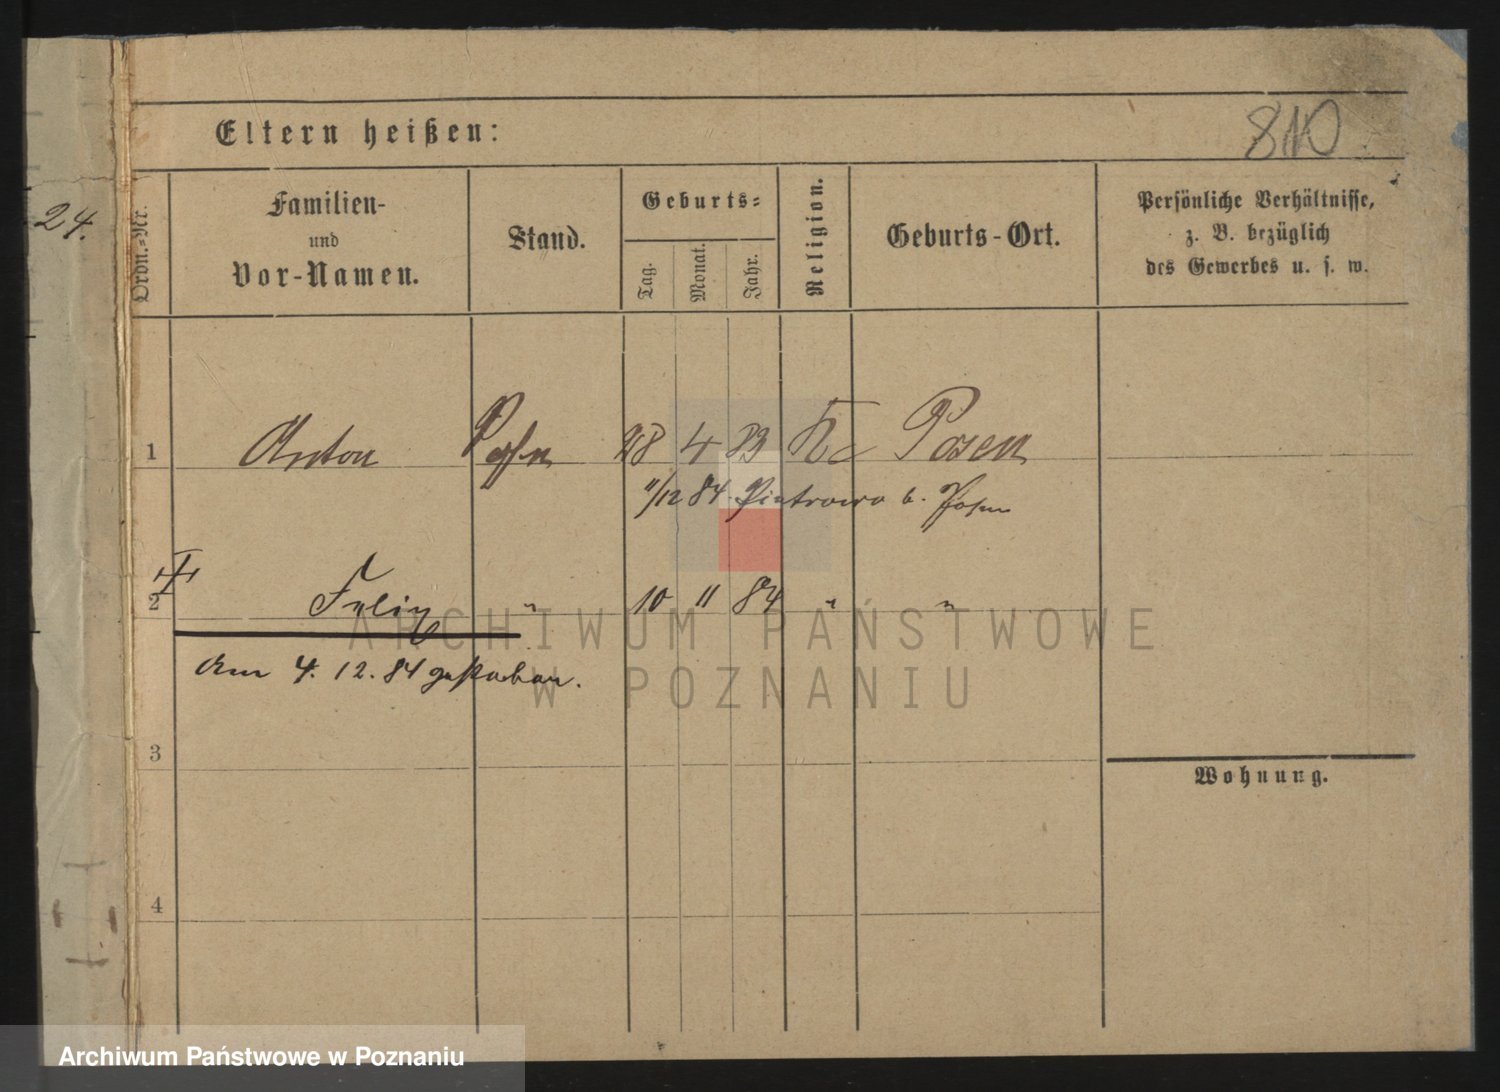 810
Eltern heißen:
24.
Ordn.=Nr.
Familien-
und
Vor-Namen.
Stand.
Geburts=
Tag.
Monat.
Jahr.
Religion.
Geburts-Ort.
Persönliche Verhältnisse,
z. B. bezüglich
des Gewerbes u. s. w.
1 Anton Sohn 28 4 83 Kc Posen
11/12 84. Pietrowo b. Posen
2 Felix " 10 11 84 " "
Am 4. 12. 84 gestorben.
3
Wohnung.
4
ARCHIWUM PAŃSTWOWE
W POZNANIU
Archiwum Państwowe w Poznaniu